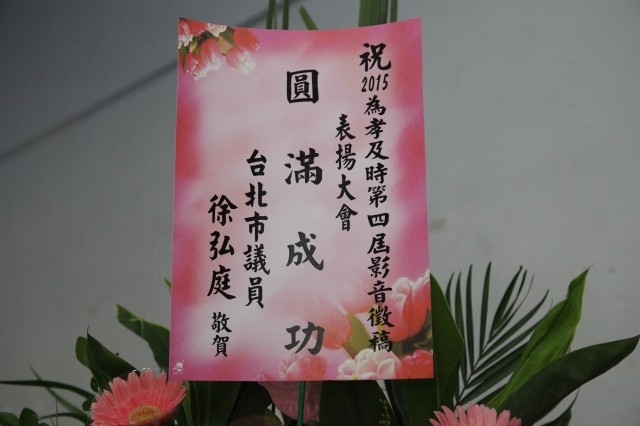 祝2015為孝及時第四屆影音徵稿
表揚大會
圓滿成功
台北市議員
徐弘庭敬賀